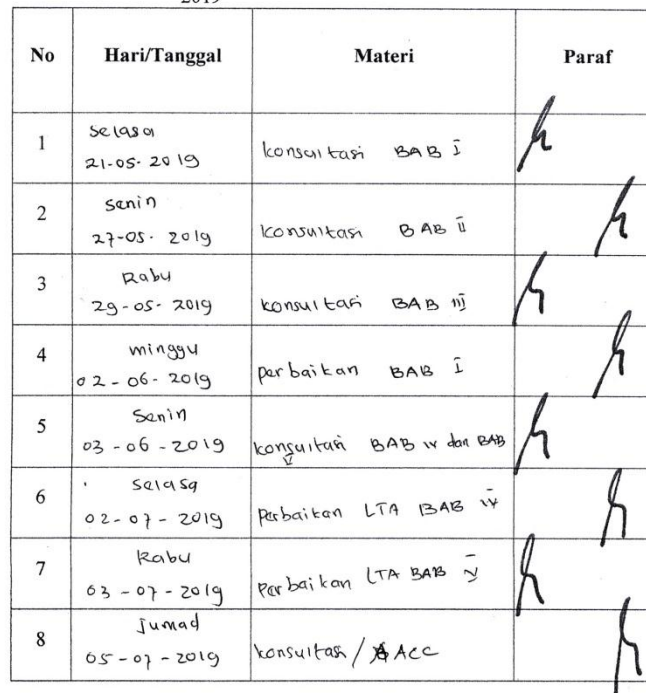 2019
No Hari/Tanggal Materi Paraf
1 Selasa
21-05-2019 konsultasi BAB I
2 Senin
27-05-2019 konsultasi BAB II
3 Rabu
29-05-2019 konsultasi BAB III
4 minggu
02-06-2019 perbaikan BAB I
5 Senin
03-06-2019 konsultasi BAB IV dan BAB
V
6 Selasa
02-07-2019 perbaikan LTA BAB IV
7 Rabu
03-07-2019 perbaikan LTA BAB V
8 Jumad
05-07-2019 konsultasi / ACC